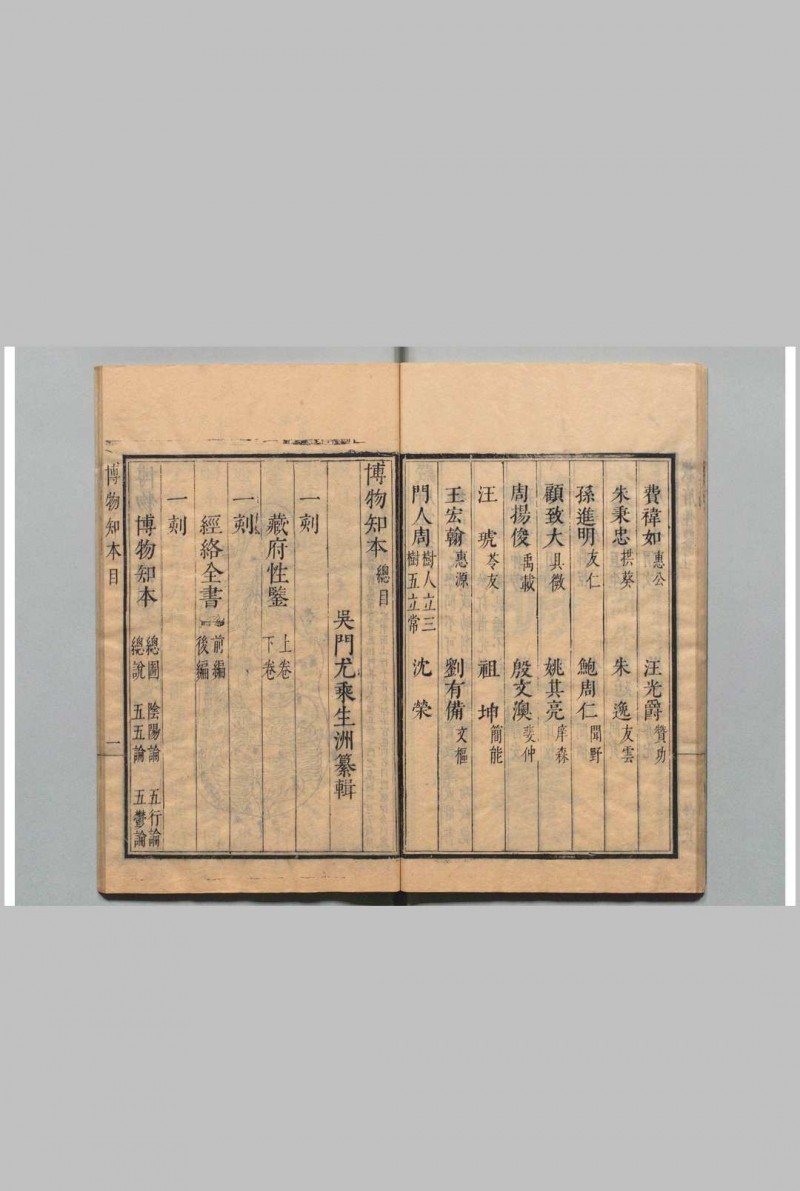 費禕如惠公 汪光爵贊功
朱秉忠拱葵 朱逸友雲
孫進明友仁 鮑周仁聞野
顧致大具微 姚其亮庠森
周揚俊禹載 殷文澳斐仲
汪琥苓友 祖坤簡能
王宏翰惠源 劉有備文樞
門人周樹人立三樹五立常 沈榮
博物知本總目
吳門尤乘生洲纂輯
一刻
藏府性鑒上卷下卷
一刻
經絡全書前編後編
一刻
博物知本總圖 陰陽論 五行論 總說 五五論 五鬱論
博物知本目 一